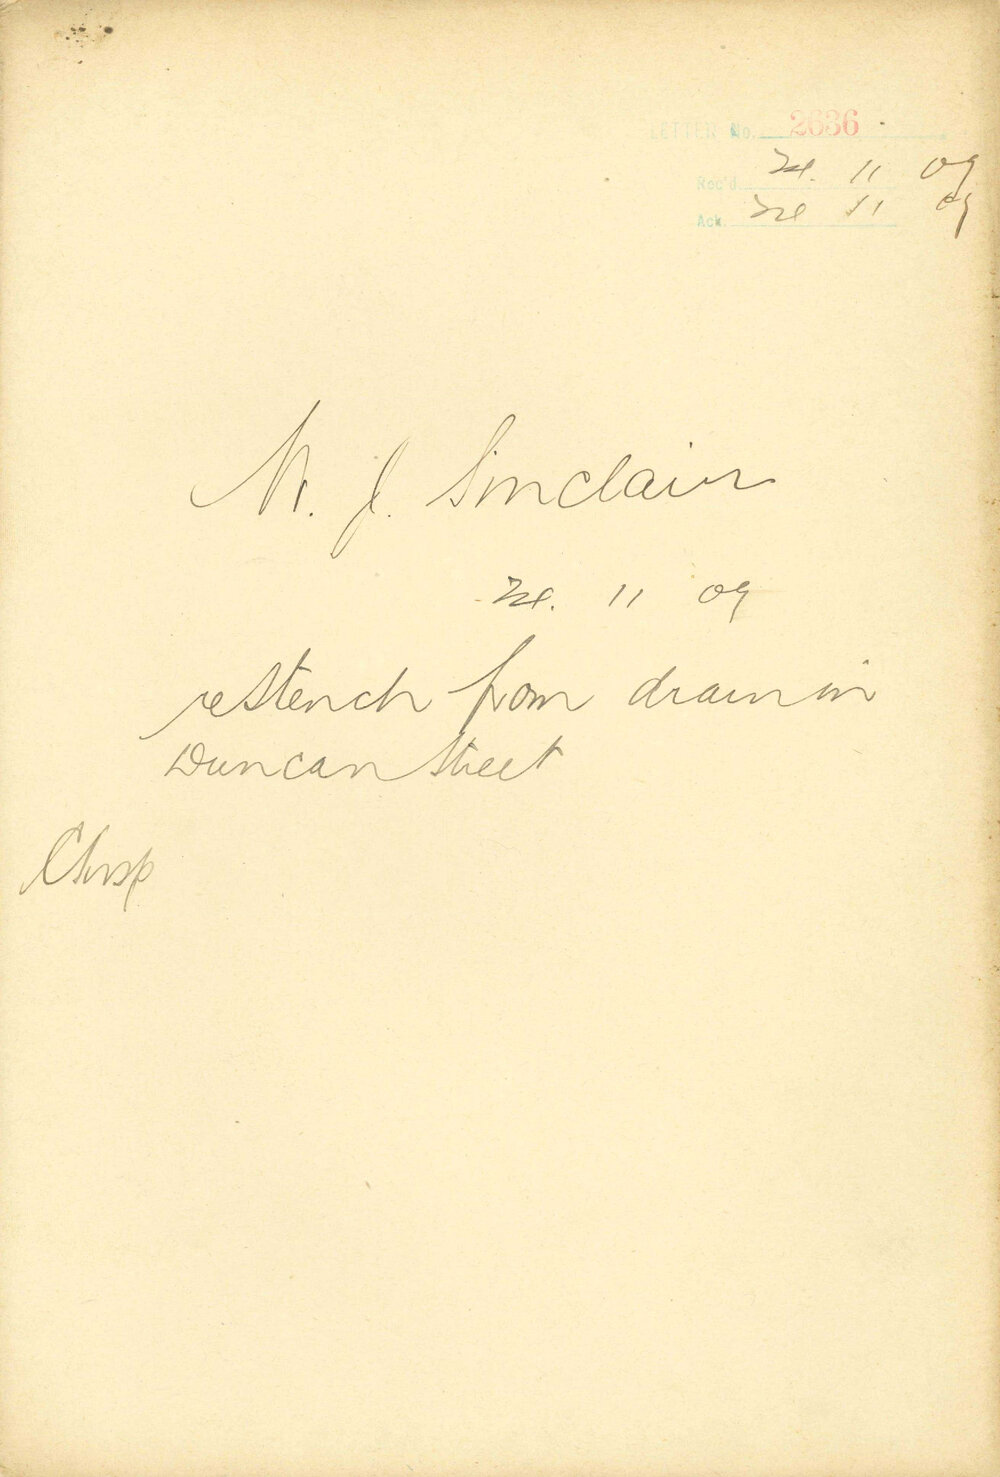 LETTER No. 2636
Rec'd 11 09
Ack 11 09
J. Sinclair
11 09
re Stench from drain in
Duncan Street